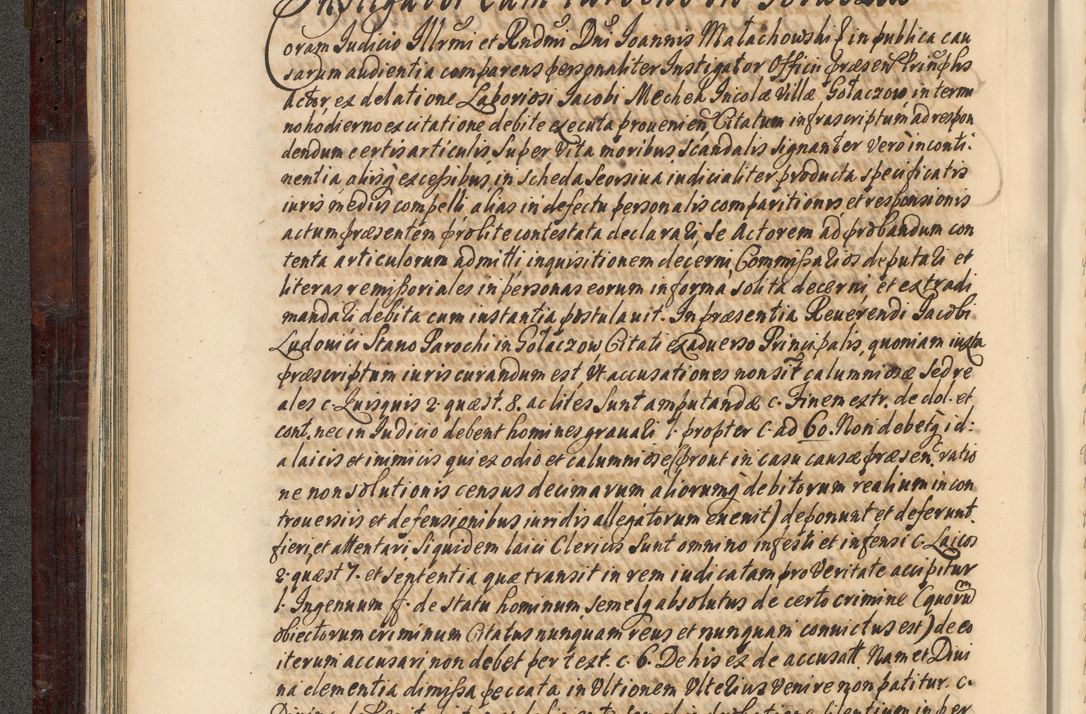 Instigator cum Parocho in Gołaczow
Coram Judicio Illrmi et Rndmi Dni Joannis Małachowski E in publica cau
sarum audientia comparens personaliter Instigator Officii præsen Prinplis
Actor ex delatione Laboriosi Jacobi Mechek Incolæ Villæ Gołaczow in term
no hodierno ex citatione debite executa provenien Citatum infrascriptum ad respon
dendum certis articulis super vita moribus scandalis signanter vero inconti-
nentia aliisq excessibus in scheda seorsiva iudicialiter producta specificatis
iuris mediis compelli alias in defectu personalis comparitionis et responsionis
actum præsentem pro lite contestata declarari, se Actorem ad probandum con
tenta articulorum admitti inquisitionem decerni, Commissarios deputari et
literas remissoriales in personas eorum in forma solita decerni et extradi
mandari debita cum instantia postulavit. In præsentia Reverendi Jacobi
Ludovici Stano Parochi in Gołaczow Citati ex adverso Principalis, quoniam iuxta
præscriptum iuris curandum est Vt accusationes non sit calumniosæ sed re
ales c. Quisquis 2 quæst. 8. ac lites sunt amputandæ c. Finem extr. de dol. et
cont. nec in Judicio debent homines gravari l. propter C. ad 60. Non debetq id:
a laicis et inimicis qui ex odio et calumniose (prout in casu causæ præsen. ratio
ne non solutionis census decimarum aliorumq debitorum realium in con
troversiis et defensionibus iuridis allegatorum evenit) deponunt et deferunt.
fieri, et attentari siquidem laici Clericis sunt omnino infesti et infensi c. Laicos
2. quæst 7. et sententia quæ transit in rem iudicatam pro veritate accipitur
l. Ingenuum ff. de statu hominum semelq absolutus de certo crimine (quorum
obiectorum criminum Citatus nunquam reus et nunquam convictus est) de eo
iterum accusari non debet per text. c. 6. De his ex de accusatt Nam et Divi
na clementia dimissa peccata in Vltionem Vlterius venire non patitur. c.